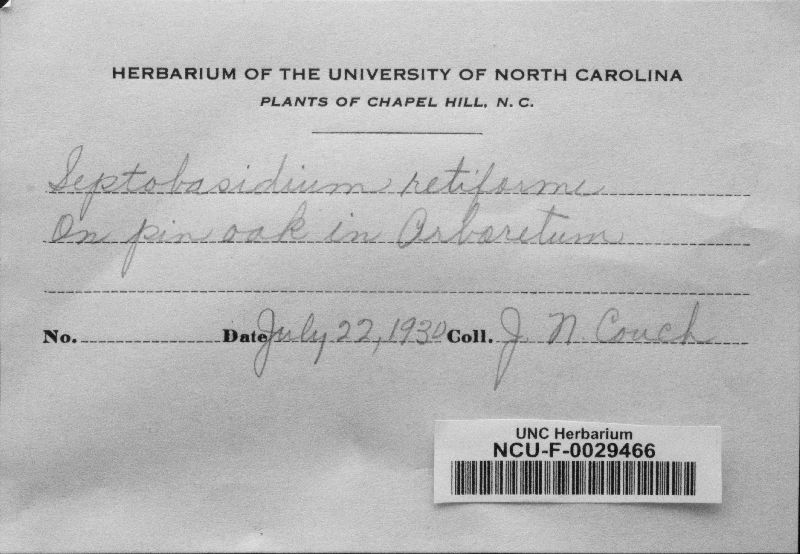 HERBARIUM OF THE UNIVERSITY OF NORTH CAROLINA
PLANTS OF CHAPEL HILL, N. C.
Septobasidium retiforme
On pin oak in Arboretum
No. Date July 22, 1930 Coll. J. N. Couch
UNC Herbarium
NCU-F-0029466